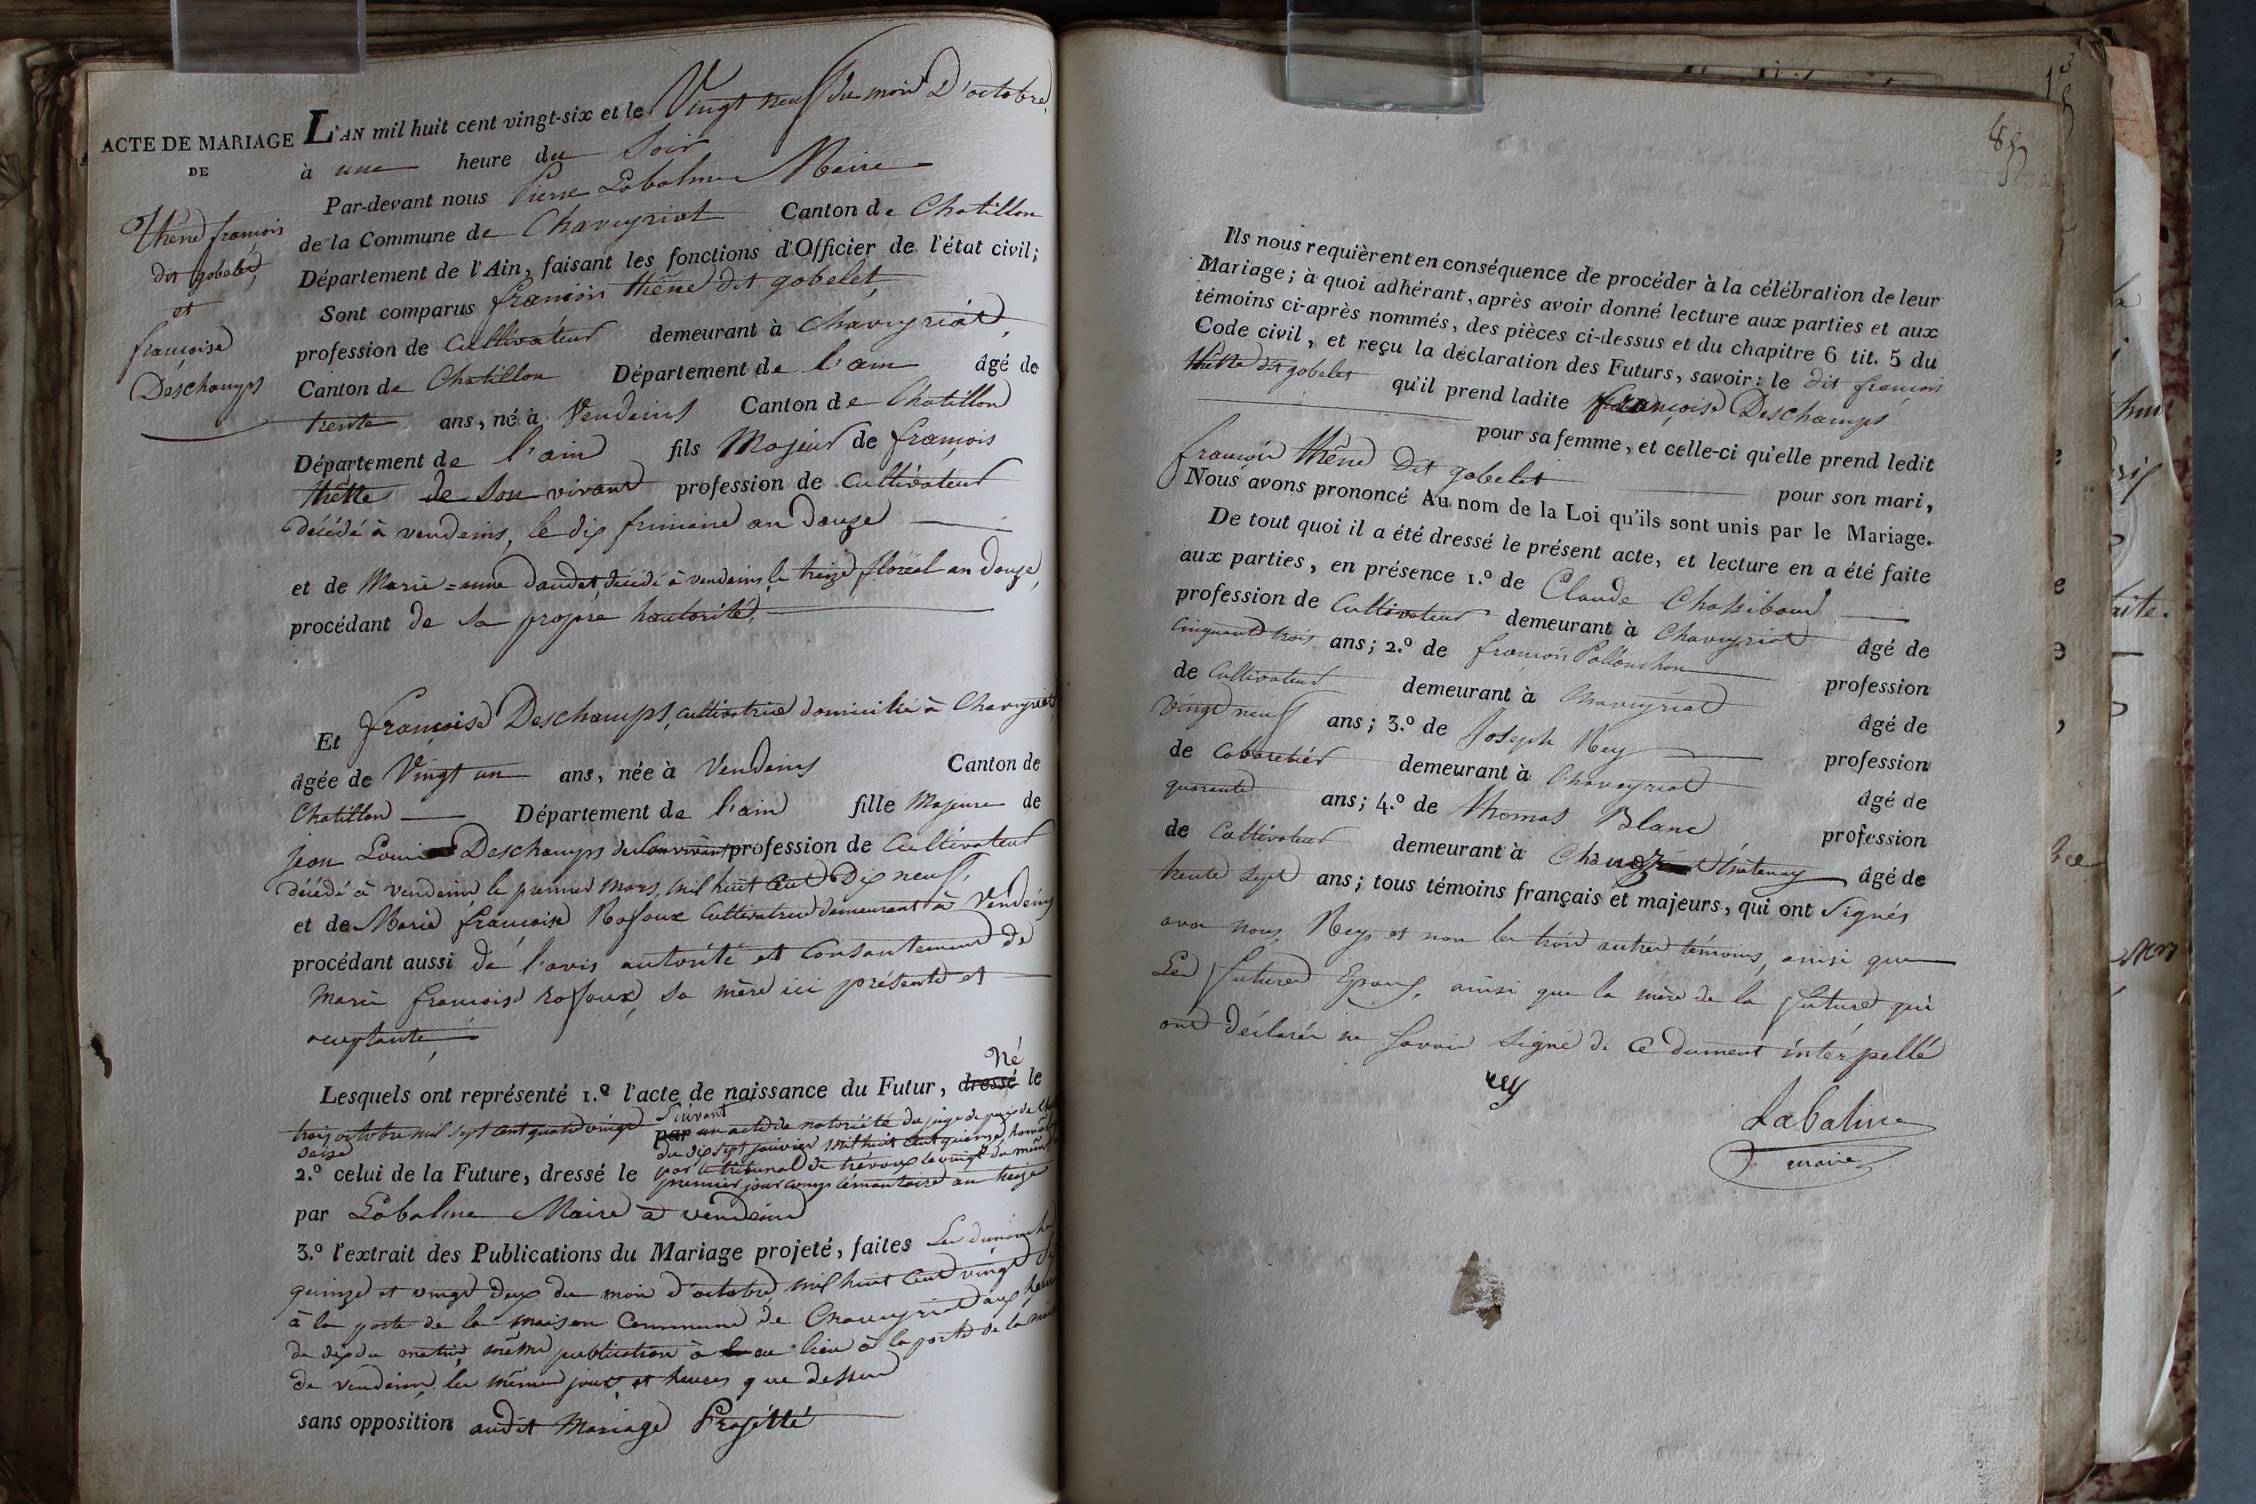 ACTE DE MARIAGE
DE
thene françois
dit gobelet,
et
françoise
Deschamps
L'AN mil huit cent vingt-six et le Vingt neuf du mois D'octobre,
à une heure du Soir
Par-devant nous Pierre Labalme Maire
de la Commune de Chaveyriat Canton de Chatillon
Département de l'Ain, faisant les fonctions d'Officier de l'état civil;
Sont comparus françois thêne dit gobelet,
profession de Cultivateur demeurant à Chaveyriat,
Canton de Chatillon Département de l'ain âgé de
trente ans, né à Vendeins Canton de Chatillon
Département de l'ain fils Majeur de françois
thêne de Son vivant profession de Cultivateur
décédé à vendeins, le dix frimaire an douze
et de Marie=anne daudet, décédé à vendeins le treize floreal an douze,
procédant de Sa propre hautorité,
Et françoise Deschamps, cultivatrice domicilié à Chaveyriat,
âgée de Vingt un ans, née à Vendeins Canton de
Chatillon Département de l'ain fille Majeure de
jean Louis Deschamps de Son vivant profession de Cultivateur
décédé à vendeins le premier mars mil huit Cent Dix neuf,
et de Marie françoise Rofoux Cultivatrice demeurant à Vendeins
procédant aussi de l'avis autorité et Consentement de
Marie françoise rofoux, sa mère ici présente et
aceptante,
Né
Lesquels ont représenté 1.º l'acte de naissance du Futur, dressé le
trois octobre mil sept cent quatre vingt Suivant
seize par un acte de notoriété du juge de paix de
du dix sept janvier mil huit cent quinze,
par le tribunal de trévoux le vingt du même
2.º celui de la Future, dressé le premier jour complémentaire an treize
par Labalme Maire à vendeins
3.º l'extrait des Publications du Mariage projeté, faites Les dimanche
quinze et vingt deux du mois d'octobre mil huit Cent vingt Six
à la porte de la maison Commune de Chaveyriat aux heures
de dix du matin, même publication à eu lieu à la porte de la
de vendeins les mêmes jours et heures que dessus
sans opposition audit Mariage Projetté
85
Ils nous requièrent en conséquence de procéder à la célébration de leur
Mariage; à quoi adhérant, après avoir donné lecture aux parties et aux
témoins ci-après nommés, des pièces ci-dessus et du chapitre 6 tit. 5 du
Code civil, et reçu la déclaration des Futurs, savoir: le dit françois
thêne dit gobelet qu'il prend ladite françoise Deschamps
pour sa femme, et celle-ci qu'elle prend ledit
françois thêne dit gobelet pour son mari,
Nous avons prononcé Au nom de la Loi qu'ils sont unis par le Mariage.
De tout quoi il a été dressé le présent acte, et lecture en a été faite
aux parties, en présence 1.º de Claude Chossiboud
profession de Cultivateur demeurant à Chaveyriat âgé de
cinquante trois ans; 2.º de françois Pallanchon profession
de Cultivateur demeurant à Chaveyriat âgé de
vingt neuf ans; 3.º de Joseph Rey profession
de Cabaretier demeurant à Chaveyriat âgé de
quarante ans; 4.º de thomas Blanc profession
de Cultivateur demeurant à Chanoz Chatenay âgé de
trente Sept ans; tous témoins français et majeurs, qui ont Signés
avec nous, Rey, et non les trois autres témoins, ainsi que
Les futures Epoux, ainsi que la mère de la future qui
ont déclarés ne Savoir Signé de Ce dument intérpellé
rey
Labalme
maire